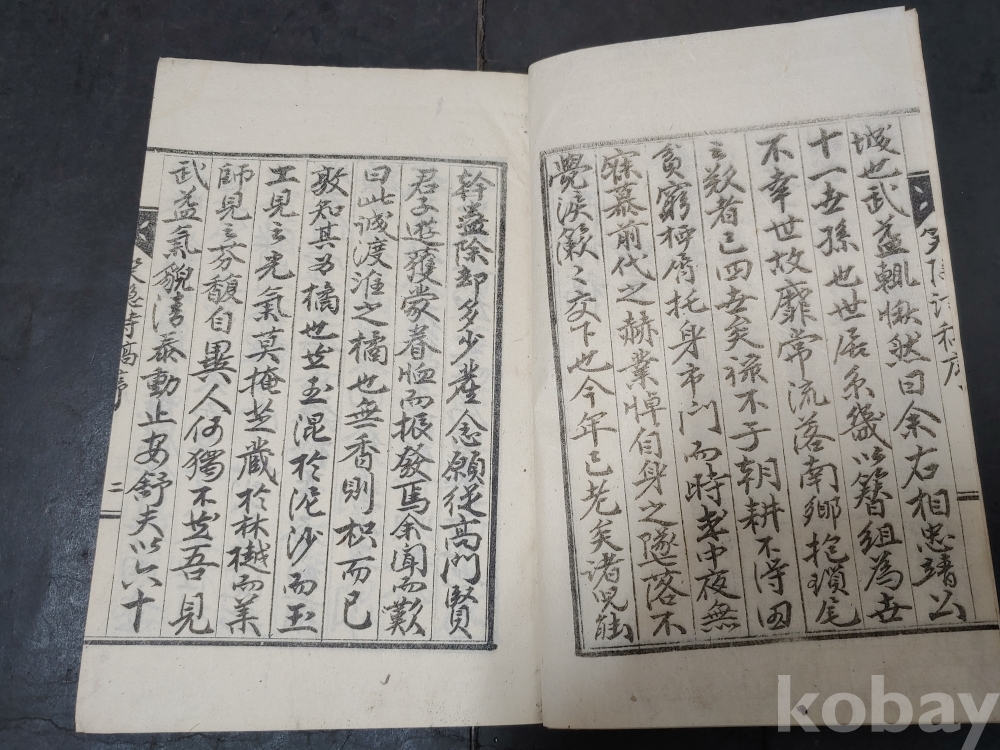 城也武益輒愀然曰余右相忠靖公
十一世孫也世居京畿以簪組為世
不幸世故靡常流落南鄕抱瑣尾
之歎者已四世矣祿不于朝耕不得田
貧窮栖屑托身市門而時或中夜無
寐慕前代之赫業悼自身之墜落不
覺淚簌〻交下也今年已老矣诸児能
幹蠱除却多少塵念願從高門賢
君子遊獲蒙眷恤而振發焉余聞而歎
曰此誠渡淮之橘也無香則枳而已
孰知其为橘也世玉混於泥沙而玉
工見之光氣莫掩芝蔵於林樾而業
師見之芬馥自異人何獨不然吾見
武益氣貌清泰動止安舒夫以六十
詩稿序
二
kobay